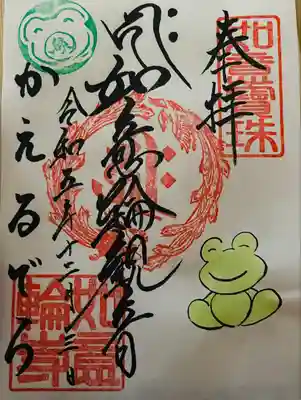 奉拝
如意寳珠
如意輪観音
令和五年十二月
かえるでら
如意輪寺